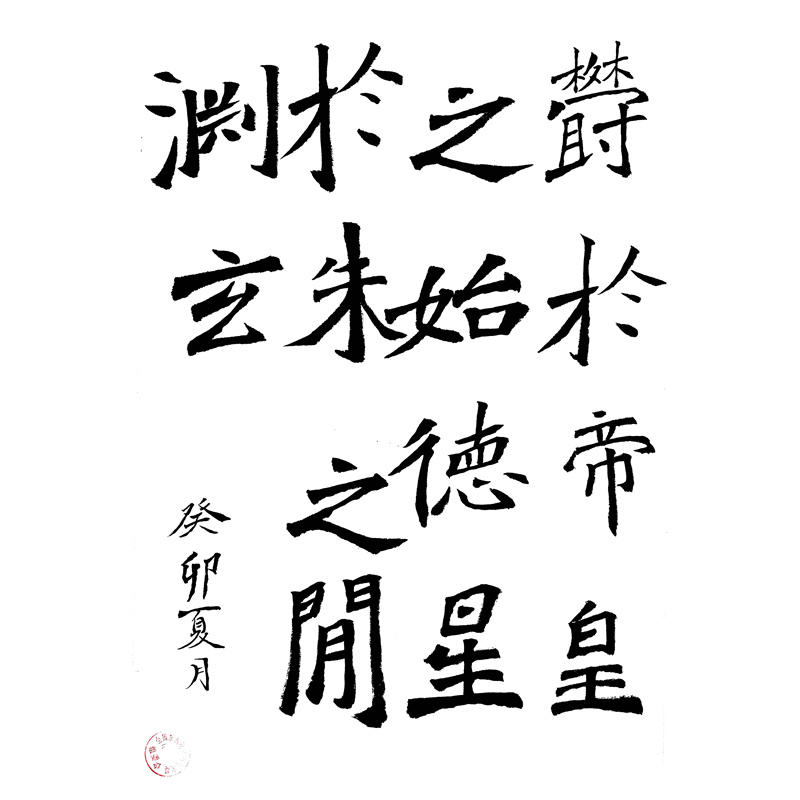 欝於帝皇
之始德星
於朱之閒
淵玄
癸卯夏月